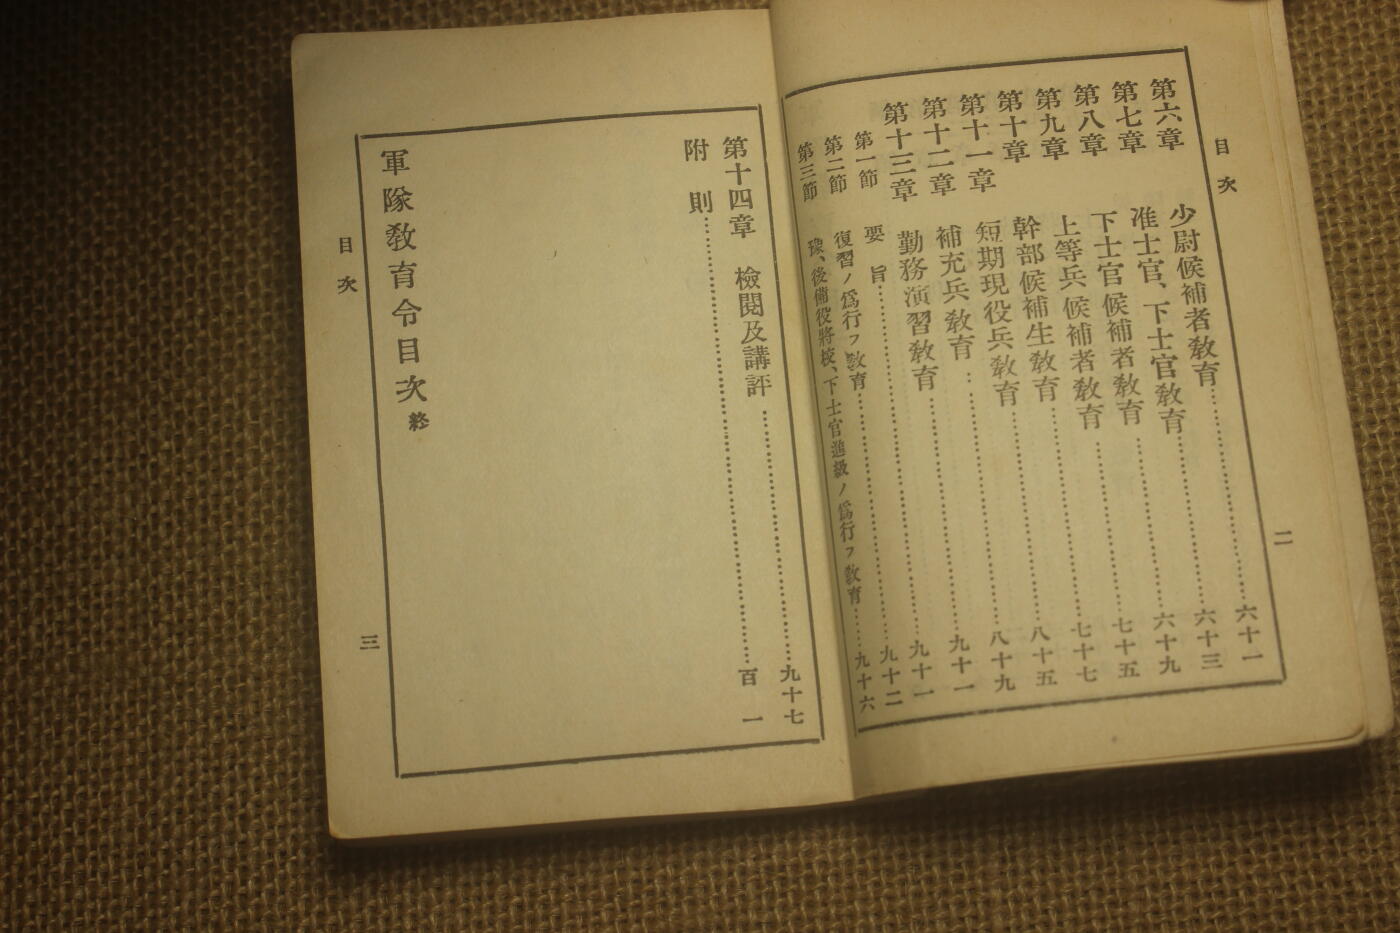 目次
第六章 少尉候補者敎育………六十一
第七章 准士官、下士官敎育………六十三
第八章 下士官候補者敎育………六十九
第九章 上等兵候補者敎育………七十五
第十章 幹部候補生敎育………七十七
第十一章 短期現役兵敎育………八十五
第十二章 補充兵敎育………八十九
第十三章 勤務演習敎育………九十一
第一節 要旨………九十一
第二節 復習ノ爲行フ敎育………九十二
第三節 豫、後備役將校、下士官進級ノ爲行フ敎育………九十六
二
第十四章 檢閱及講評………九十七
附則………百一
軍隊敎育令目次終
目次
三